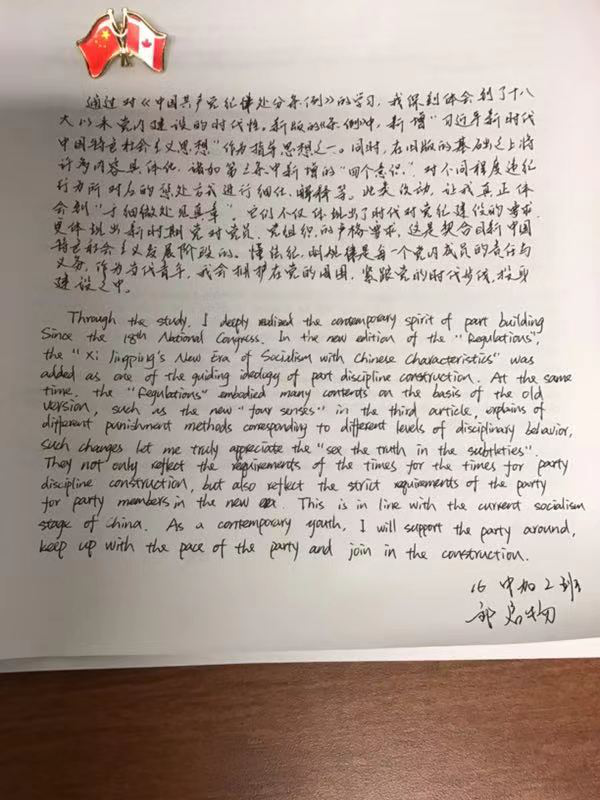 通过对《中国共产党纪律处分条例》的学习，我深刻体会到了十八
大以来党内建设的时代性。新版的《条例》中，新增“习近平新时代
中国特色社会主义思想”作为指导思想之一。同时，在旧版的基础之上将
许多内容具体化，诸如第三条中新增的“四个意识”，对不同程度违纪
行为所对应的惩处方式进行细化、解释等。此类改动，让我真正体
会到“于细微处见真章”。它们不仅体现出了时代对党纪建设的要求，
更体现出新时期党对党员、党组织的严格要求，这是契合目前中国
特色社会主义发展阶段的。懂法纪，明规律是每一个党内成员的责任与
义务，作为当代青年，我会拥护在党的周围，紧跟党的时代步伐，投身
建设之中。
Through the study, I deeply realized the contemporary spirit of part building
Since the 18th National Congress. In the new edition of the "Regulations",
the "Xi Jingping's New Era of Socialism with Chinese Characteristics" was
added as one of the guiding ideology of part discipline construction. At the same
time, the "Regulations" embodied many contents on the basis of the old
version, such as the new "four senses" in the third article, explains of
different punishment methods corresponding to different levels of disciplinary behavior,
such changes let me truly appreciate the "see the truth in the subtleties".
They not only reflect the requirements of the times for the times for party
discipline construction, but also reflect the strict requirements of the party
for party members in the new era. This is in line with the current socialism
stage of China. As a contemporary youth, I will support the party around,
keep up with the pace of the party and join in the construction.
16 中加2班